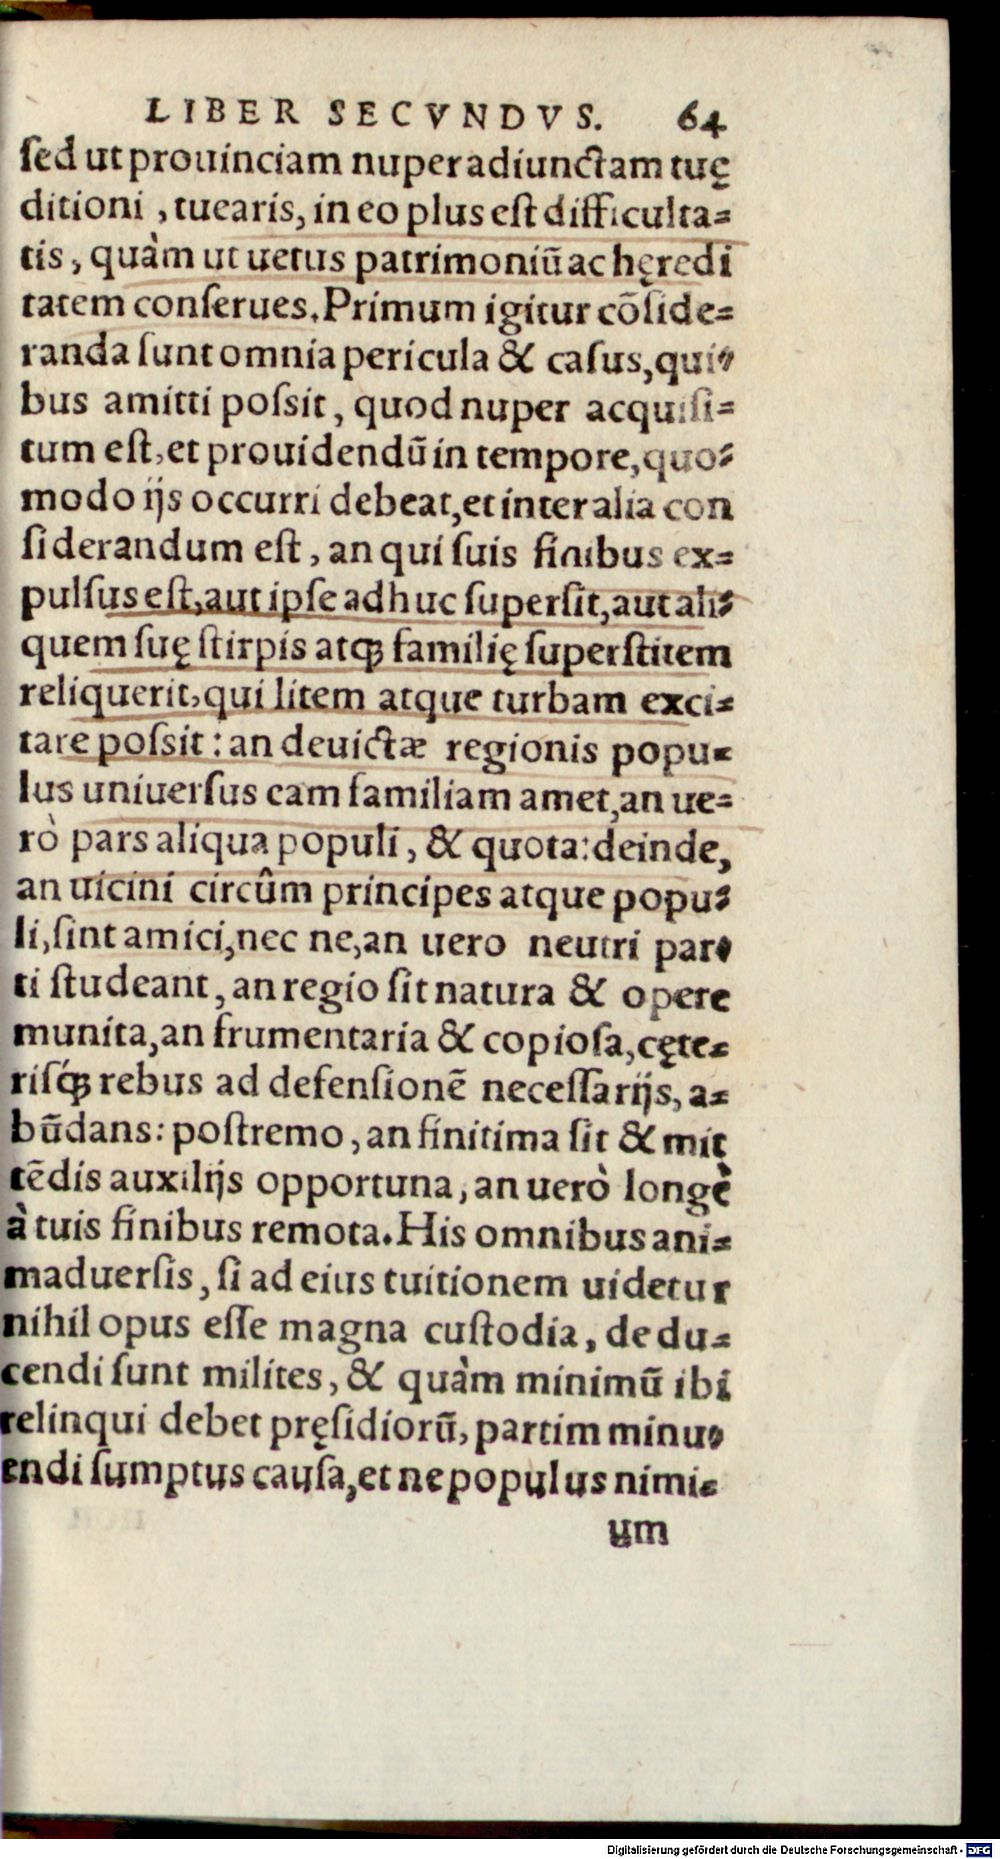 LIBER SECVNDVS. 64
sed ut prouinciam nuper adiunctam tuę
ditioni, tuearis, in eo plus est difficulta=
tis, quàm ut uetus patrimoniũ ac hęredi
tatem conserues. Primum igitur cõside=
randa sunt omnia pericula & casus, qui=
bus amitti possit, quod nuper acquisi=
tum est, et prouidendũ in tempore, quo=
modo ijs occurri debeat, et inter alia con
siderandum est, an qui suis finibus ex=
pulsus est, aut ipse adhuc supersit, aut ali=
quem suę stirpis atq; familię superstitem
reliquerit, qui litem atque turbam exci=
tare possit: an deuictæ regionis popu=
lus uniuersus eam familiam amet, an ue=
rò pars aliqua populi, & quota: deinde,
an uicini circûm principes atque popu=
li, sint amici, nec ne, an uero neutri par=
ti studeant, an regio sit natura & opere
munita, an frumentaria & copiosa, cęte=
risq́; rebus ad defensionẽ necessarijs, a=
bũdans: postremo, an finitima sit & mit
tẽdis auxilijs opportuna, an uerò longè
à tuis finibus remota. His omnibus ani=
maduersis, si ad eius tuitionem uidetur
nihil opus esse magna custodia, dedu=
cendi sunt milites, & quàm minimũ ibi
relinqui debet pręsidiorũ, partim minu=
endi sumptus causa, et ne populus nimi=
um
Digitalisierung gefördert durch die Deutsche Forschungsgemeinschaft - DFG